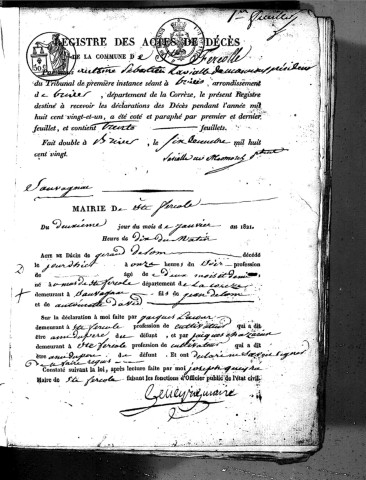 1er feuillet
REGISTRE DES ACTES DE DÉCÈS
DE LA COMMUNE DE Ste Fereole
Antoine Sébastien président
du Tribunal de première instance séant à Brives, arrondissement
de Brives, département de la Corrèze, le présent Registre
destiné à recevoir les déclarations des Décès pendant l'année mil
huit cent vingt-et-un, a été coté et paraphé par premier et dernier
feuillet, et contient trente feuillets.
Fait double à Brives, le six décembre mil huit
cent vingt.
Sauvagnac
MAIRIE De Ste fereole
Du deuxième jour du mois de janvier an 1821.
Heure de dix du matin
ACTE de Décès de gerard delom décédé
le jour d'hier à onze heures du soir profession
de âgé de deux mois et demi
né à Ste fereole département de la correze
demeurant à Sauvagnac fils de jean delom
et de antoinette
Sur la déclaration à moi faite par jacques
demeurant à Ste fereole profession de cultivateur qui a dit
être du défunt, et par jacques
demeurant à Ste fereole profession de cultivateur qui a
dit être du défunt. Et ont déclaré ne savoir signer
de ce faire requis
Constaté suivant la loi, après lecture faite par moi joseph
Maire de Ste fereole faisant les fonctions d'Officier public de l'état civil.
maire